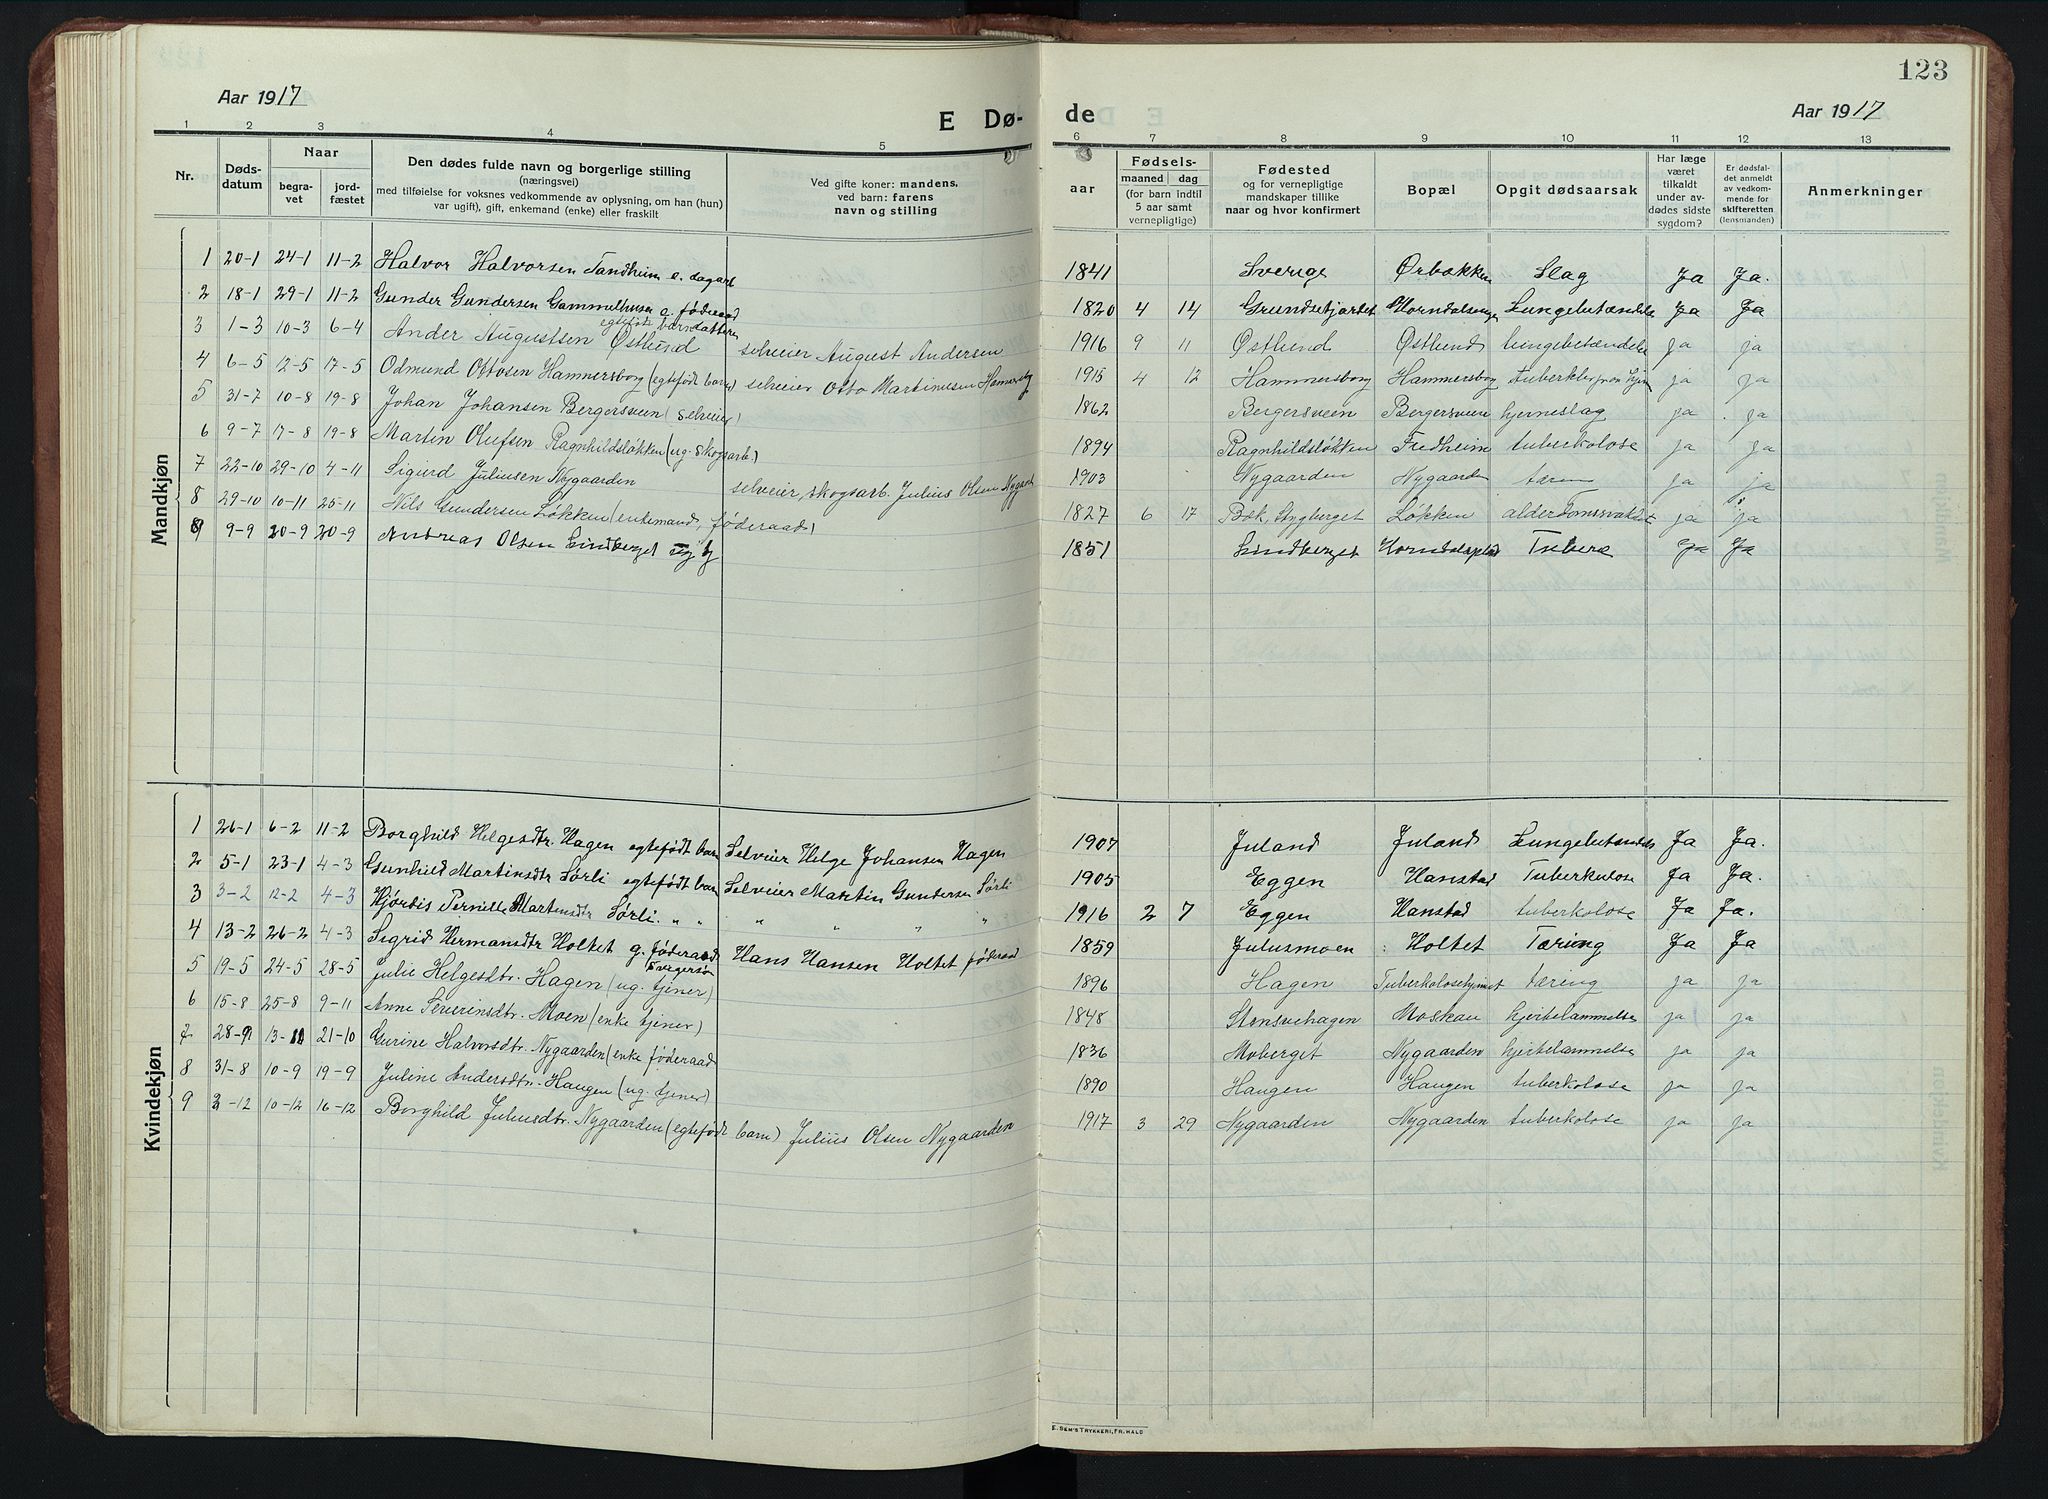 123
Aar 1917
E Dø-
de
Aar 1917
1 2 3 4 5 6 7 8 9 10 11 12 13
Nr.
Døds-
datum
Naar
begra-
vet
jord-
fæstet
Den dødes fulde navn og borgerlige stilling
(næringsvei)
med tilføielse for voksnes vedkommende av oplysning, om han (hun)
var ugift), gift, enkemand (enke) eller fraskilt
Ved gifte koner: mandens,
ved barn: farens
navn og stilling
aar
Fødsels-
maaned dag
(for barn indtil
5 aar samt
vernepligtige)
Fødested
og for vernepligtige
mandskaper tillike
naar og hvor konfirmert
Bopæl
Opgit dødsaarsak
Har læge
været
tilkaldt
under av-
dødes sidste
sygdom?
Er dødsfal-
det anmeldt
av vedkom-
mende for
skifteretten
(lensmanden)
Anmerkninger
Mandkjøn
1 20-1 24-1 11-2 Halvor Halvorsen Sandheim e. dagarb 1841 Sverige Ørbækken Slag Ja Ja.
2 18-1 29-1 11-2 Gunder Gundersen Gammelhusa e. føderaad 1820 4 14 Grundsetjordet Horndalsengen Lungebetændelse Ja Ja
egtefødt barn
3 1-3 10-3 6-4 Ander Augustsen Østlund selveier August Andersen 1916 9 11 Østlund Østlund lungebetændelse ja ja
4 6-5 12-5 17-5 Odmund Ottosen Hammersborg (egtefødt barn) selveier Otto Martinusen Hamersbg 1915 4 12 Hammersborg Hammersborg ja ja
5 31-7 10-8 19-8 Johan Johansen Bergersveen (selveier) 1862 Bergersveen Bergersveen hjerneslag ja ja
6 9-7 17-8 19-8 Martin Olufsen Ragnhildsløkken (ug. skogsarb.) 1894 Ragnhildsløkken Fredheim tuberkolose ja ja
7 22-10 29-10 4-11 Sigurd Juliussen Nygaarden selveier, skogsarb. Julius Olsen Nygard 1903 Nygaarden Nygaarden tæring ja ja
8 29-10 10-11 25-11 Nils Gundersen Løkken (enkemand, føderaads) 1827 6 17 Bæk, Stygberget Løkken ja ja
9 9-9 20-9 30-9 Andreas Olsen Lindberget 1851 Lindberget Horndalsplad Tuberc Ja Ja
Kvindekjøn
1 26-1 6-2 11-2 Borghild Helgesdtr. Hagen egtefødt barn Selveier Helge Johansen Hagen 1907 Juland Juland Lungebetændels Ja Ja.
2 5-1 23-1 4-3 Gunhild Martinsdtr Sørli egtefødt barn Selveier Martin Gundersen Sørli 1905 Eggen Hanstad Tuberkulose Ja Ja.
3 3-2 12-2 4-3 Hjørdis Pernille Martinsdtr Sørli. " " " " " " 1916 2 7 Eggen Hanstad tuberkolose Ja Ja.
4 13-2 26-2 4-3 Sigrid Hermansdtr Holtet g. føderaad Hans Hansen Holtet føderaad 1859 Julusmoen Holtet Tæring Ja Ja
Torgersen
5 19-5 24-5 28-5 Julie Helgesdtr. Hagen (ug. tjener) 1896 Hagen Tuberkolosehjemet tæring ja ja
6 15-8 25-8 9-11 Anne Severinsdtr. Moen (enke tjener) 1848 Stensvehagen Moskau hjertelammelse ja ja
7 28-9 13-10 21-10 Gurine Halvorsdtr. Nygaarden (enke føderaad 1836 Moberget Nygaarden hjertelammelse ja ja
8 31-8 10-9 19-9 Juline Andersdtr. Haugen (ug. tjener) 1890 Haugen Haugen tuberkolose ja ja
9 2-12 10-12 16-12 Borghild Juliusdtr. Nygaarden (egtefødt barn) Julius Olsen Nygaarden 1917 3 29 Nygaarden Nygaarden tuberkolose ja ja
E. SEM'S TRYKKERI, FR.HALD